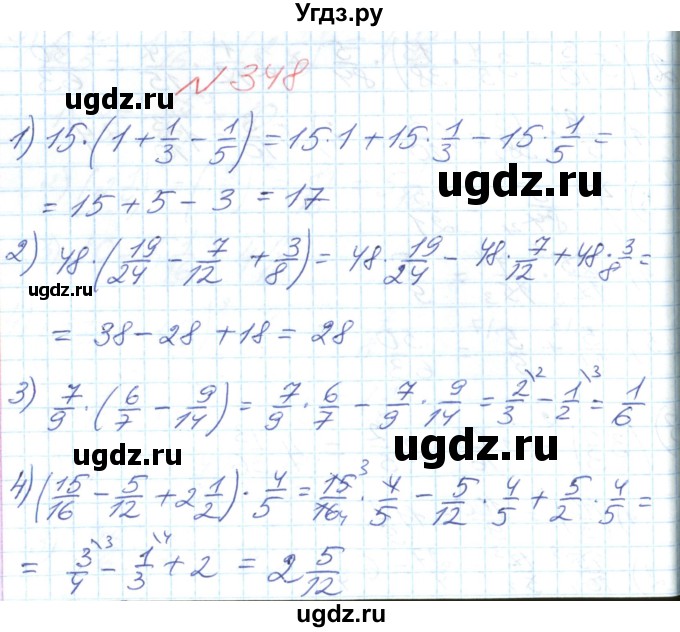 Угдз.ру
№ 348
ugdz.ru
1) 15·(1 + 1/3 − 1/5) = 15·1 + 15·1/3 − 15·1/5 =
ugdz.ru
= 15 + 5 − 3 = 17
2) 48·(19/24 − 7/12 + 3/8) = 48·19/24 − 48·7/12 + 48·3/8 =
ugdz.ru
= 38 − 28 + 18 = 28
3) 7/9·(6/7 − 9/14) = 7/9·6/7 − 7/9·9/14 = 2/3\2 − 1/2\3 = 1/6
ugdz.ru
4) (15/16 − 5/12 + 2 1/2)·4/5 = 15 3/16 4·4/5 − 5/12·4/5 + 5/2·4/5 =
ugdz.ru
= 3/4\3 − 1/3\4 + 2 = 2 5/12
ugdz.ru
ugdz.ru